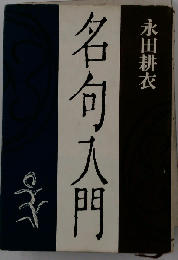 永田耕衣
名句入門